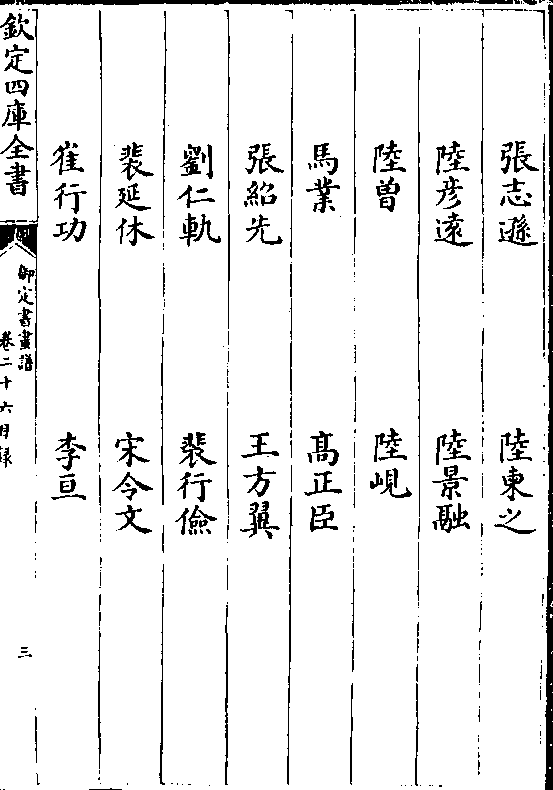 張志遜　陸柬之
陸彦遠　陸景融
陸曽　陸峴
馬業　髙正臣
張紹先　王方翼
劉仁軌　裴行儉
裴延休　宋令文
崔行功　李亘
欽定四庫全書
御定書畫譜
卷二十六目録
三